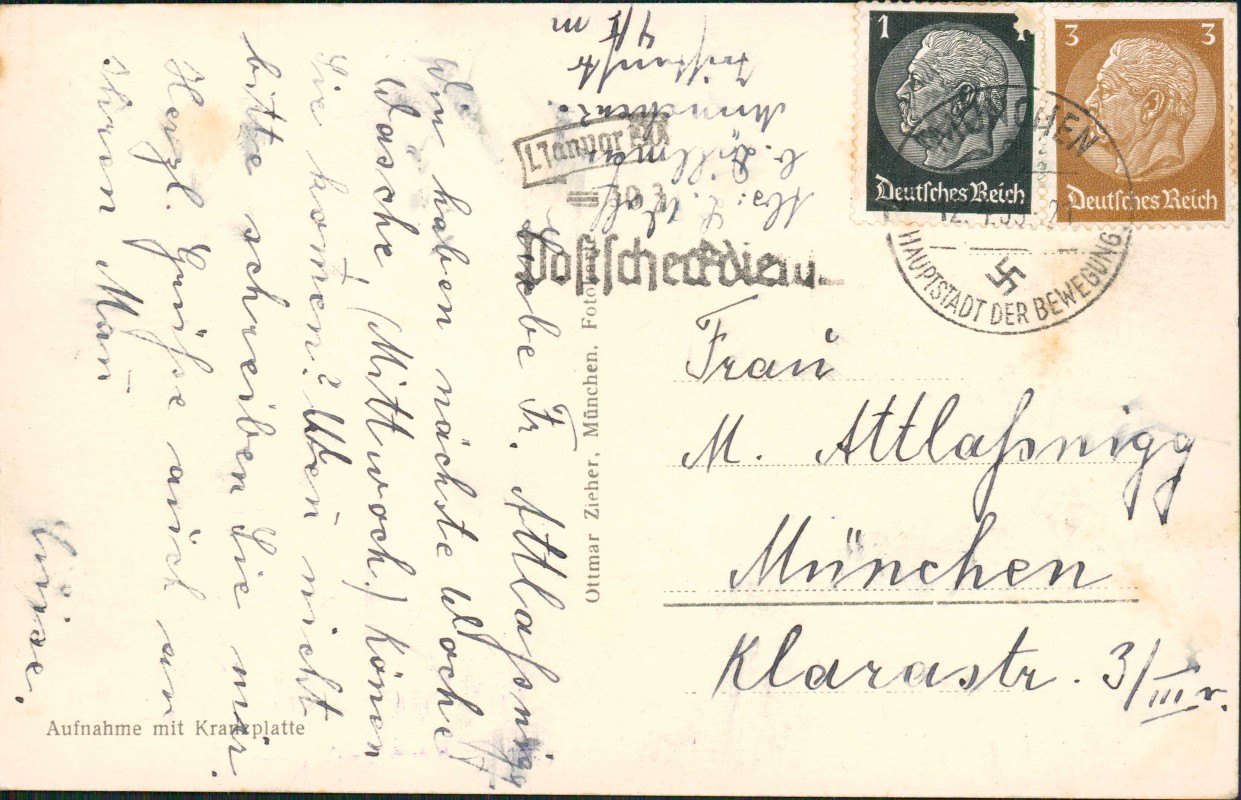 Liebe Fr. Attlaßnigg
Wir haben nächste Woche
Wäsche, (Mittwoch,) könen
Sie komen? Wen nicht
bitte schreiben Sie mir.
Herzl. Grüße auch an
Ihren Man
Luise.
Abs:
München
Tristanstr
4/I m
1 1
Deutsches Reich
3 3
Deutsches Reich
MÜNCHEN
HAUPTSTADT DER BEWEGUNG
1. Januar
Postscheckdien
Ottmar Zieher, München. Foto
Frau
M. Attlaßnigg
München
Klarastr. 3/III r.
Aufnahme mit Kranzplatte